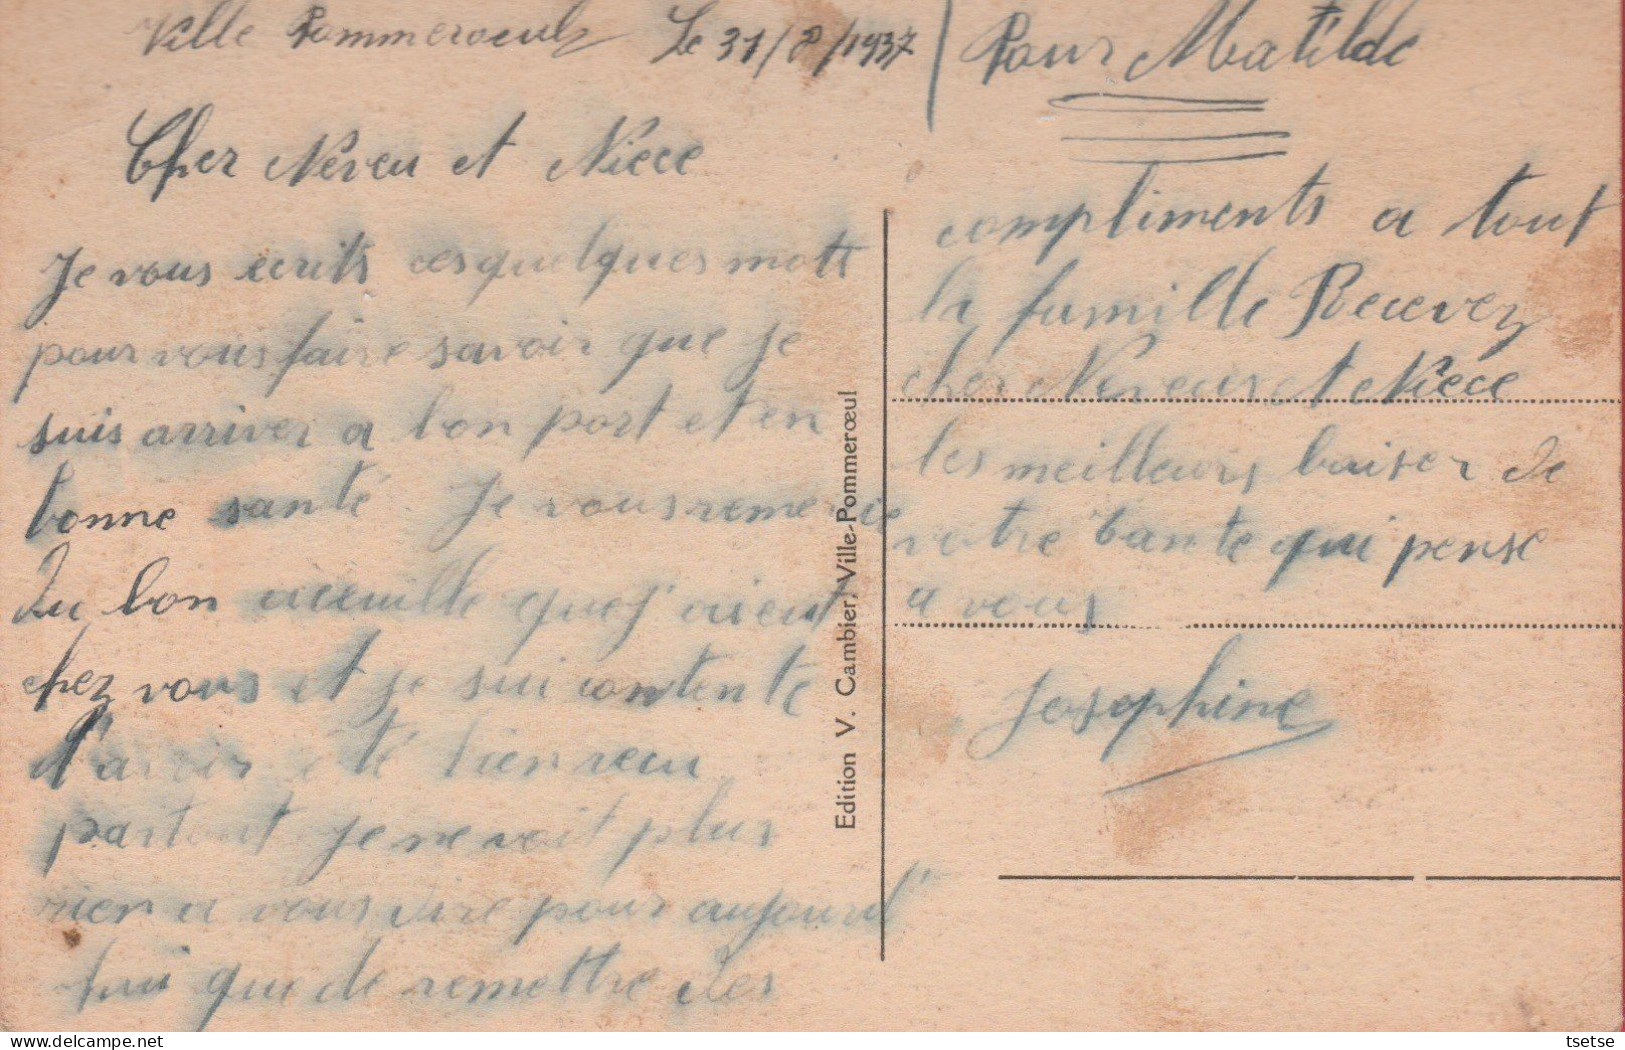 Ville Pommeroeul Le 31/8/1937
Pour Matilde
Cher Neveu et Niece
Je vous ecrits ces quelques mott
pour vous faire savoir que je
suis arriver a bon port et en
bonne santé Je vous remercie
Du bon acceuille que j'ai eut
chez vous et je sui contente
d'avoir été bien recu
partout je ne voit plus
rien a vous dire pour aujourd'
hui que de remettre des
compliments a tout
la famille Recevez
cher Neveux et Niece
les meilleurs baiser de
votre tante qui pense
a vous
Josephine
Edition V. Cambier, Ville-Pommerœul
tsetse